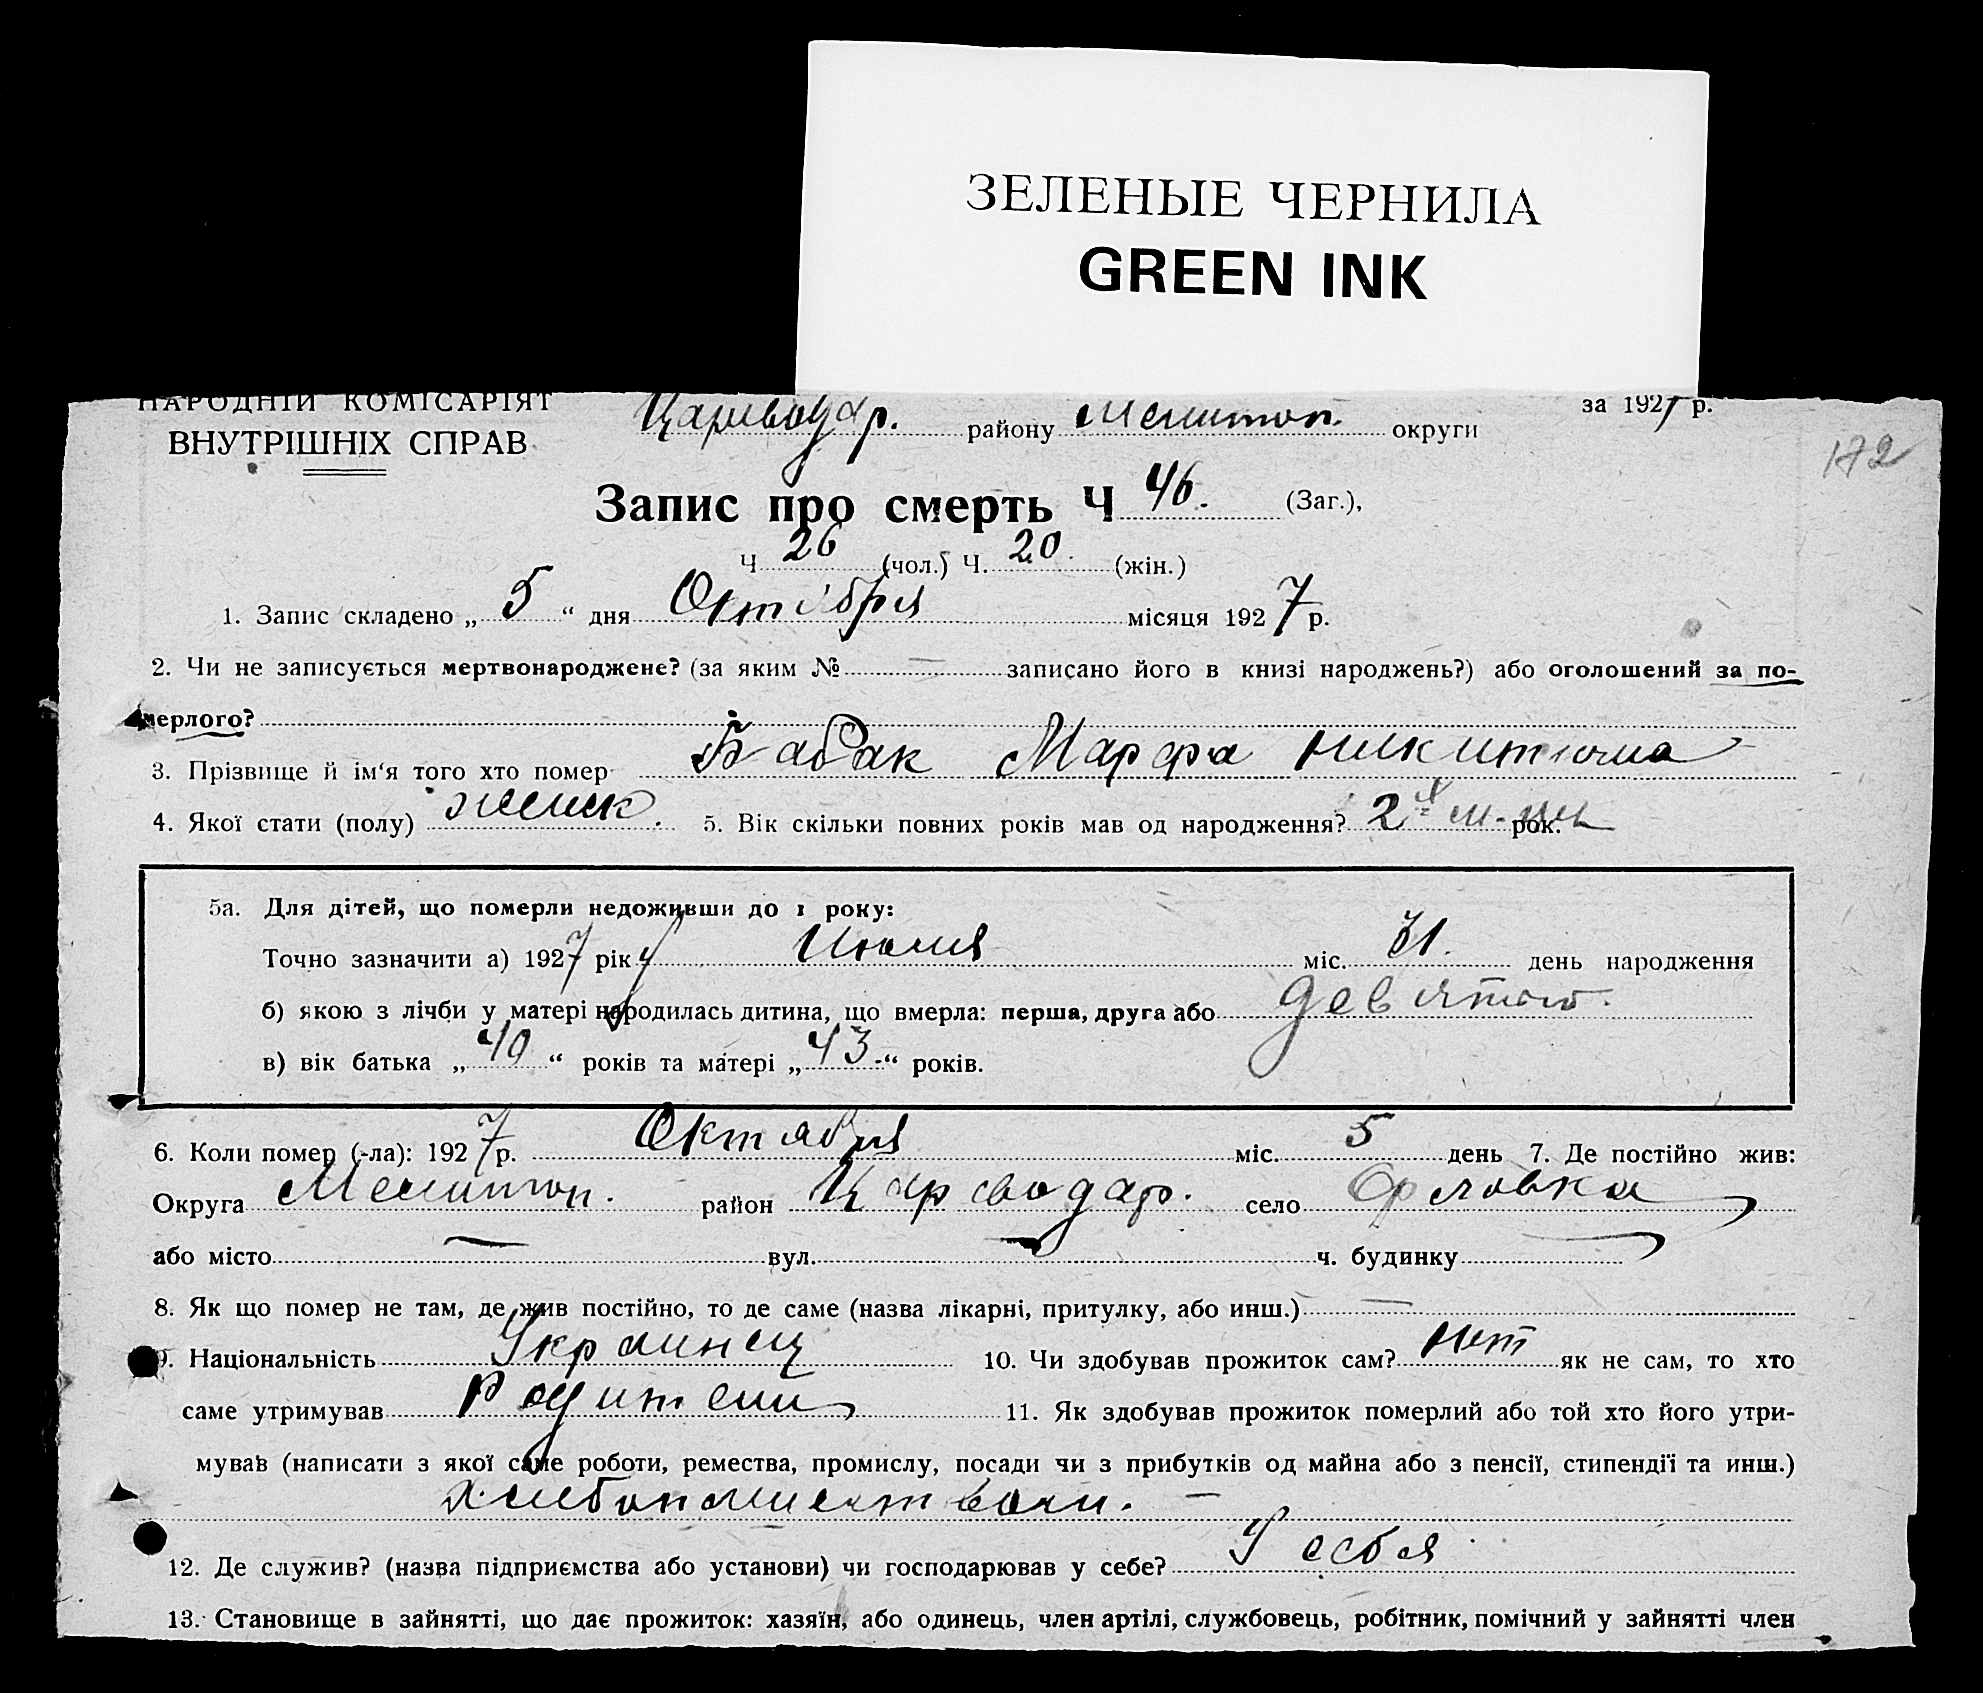 ЗЕЛЕНЫЕ ЧЕРНИЛА
GREEN INK
НАРОДНІЙ КОМІСАРІЯТ
ВНУТРІШНІХ СПРАВ
Цареводар. району Мелитоп. округи
за 1927 р.
172
Запис про смерть Ч 46. (Заг.),
Ч 26 (чол.) Ч. 20. (жін.)
1. Запис складено „ 5 “ дня Октября місяця 1927 р.
2. Чи не записується мертвонароджене? (за яким № — записано його в книзі народжень?) або оголошений за по-
мерлого?
3. Прізвище й ім‘я того хто помер Бабак Марфа Никитовна
4. Якої стати (полу) женск. 5. Вік скільки повних років мав од народження? 2х м-цев рок.
5а. Для дітей, що померли недоживши до 1 року:
Точно зазначити а) 1927 рік Июля міс. 31. день народження
б) якою з лічби у матері народилась дитина, що вмерла: перша, друга або девятой.
в) вік батька „ 40 “ років та матері „ 43 “ років.
6. Коли помер (-ла): 1927 р. Октября міс. 5 день 7. Де постійно жив:
Округа Мелитоп. район Цареводар. село Орловка
або місто — вул. — ч. будинку —
8. Як що помер не там, де жив постійно, то де саме (назва лікарні, притулку, або инш.) —
9. Національність Украинец 10. Чи здобував прожиток сам? Нет як не сам, то хто
саме утримував Родители 11. Як здобував прожиток померлий або той хто його утри-
мував (написати з якої саме роботи, ремества, промислу, посади чи з прибутків од майна або з пенсії, стипендії та инш.)
Хлебопашеством. —
12. Де служив? (назва підприємства або установи) чи господарював у себе? У себя
13. Становище в зайнятті, що дає прожиток: хазяїн, або одинець, член артілі, службовець, робітник, помічний у зайнятті член